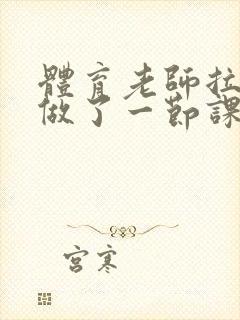 體育老師拉
做了一節課
宮寒